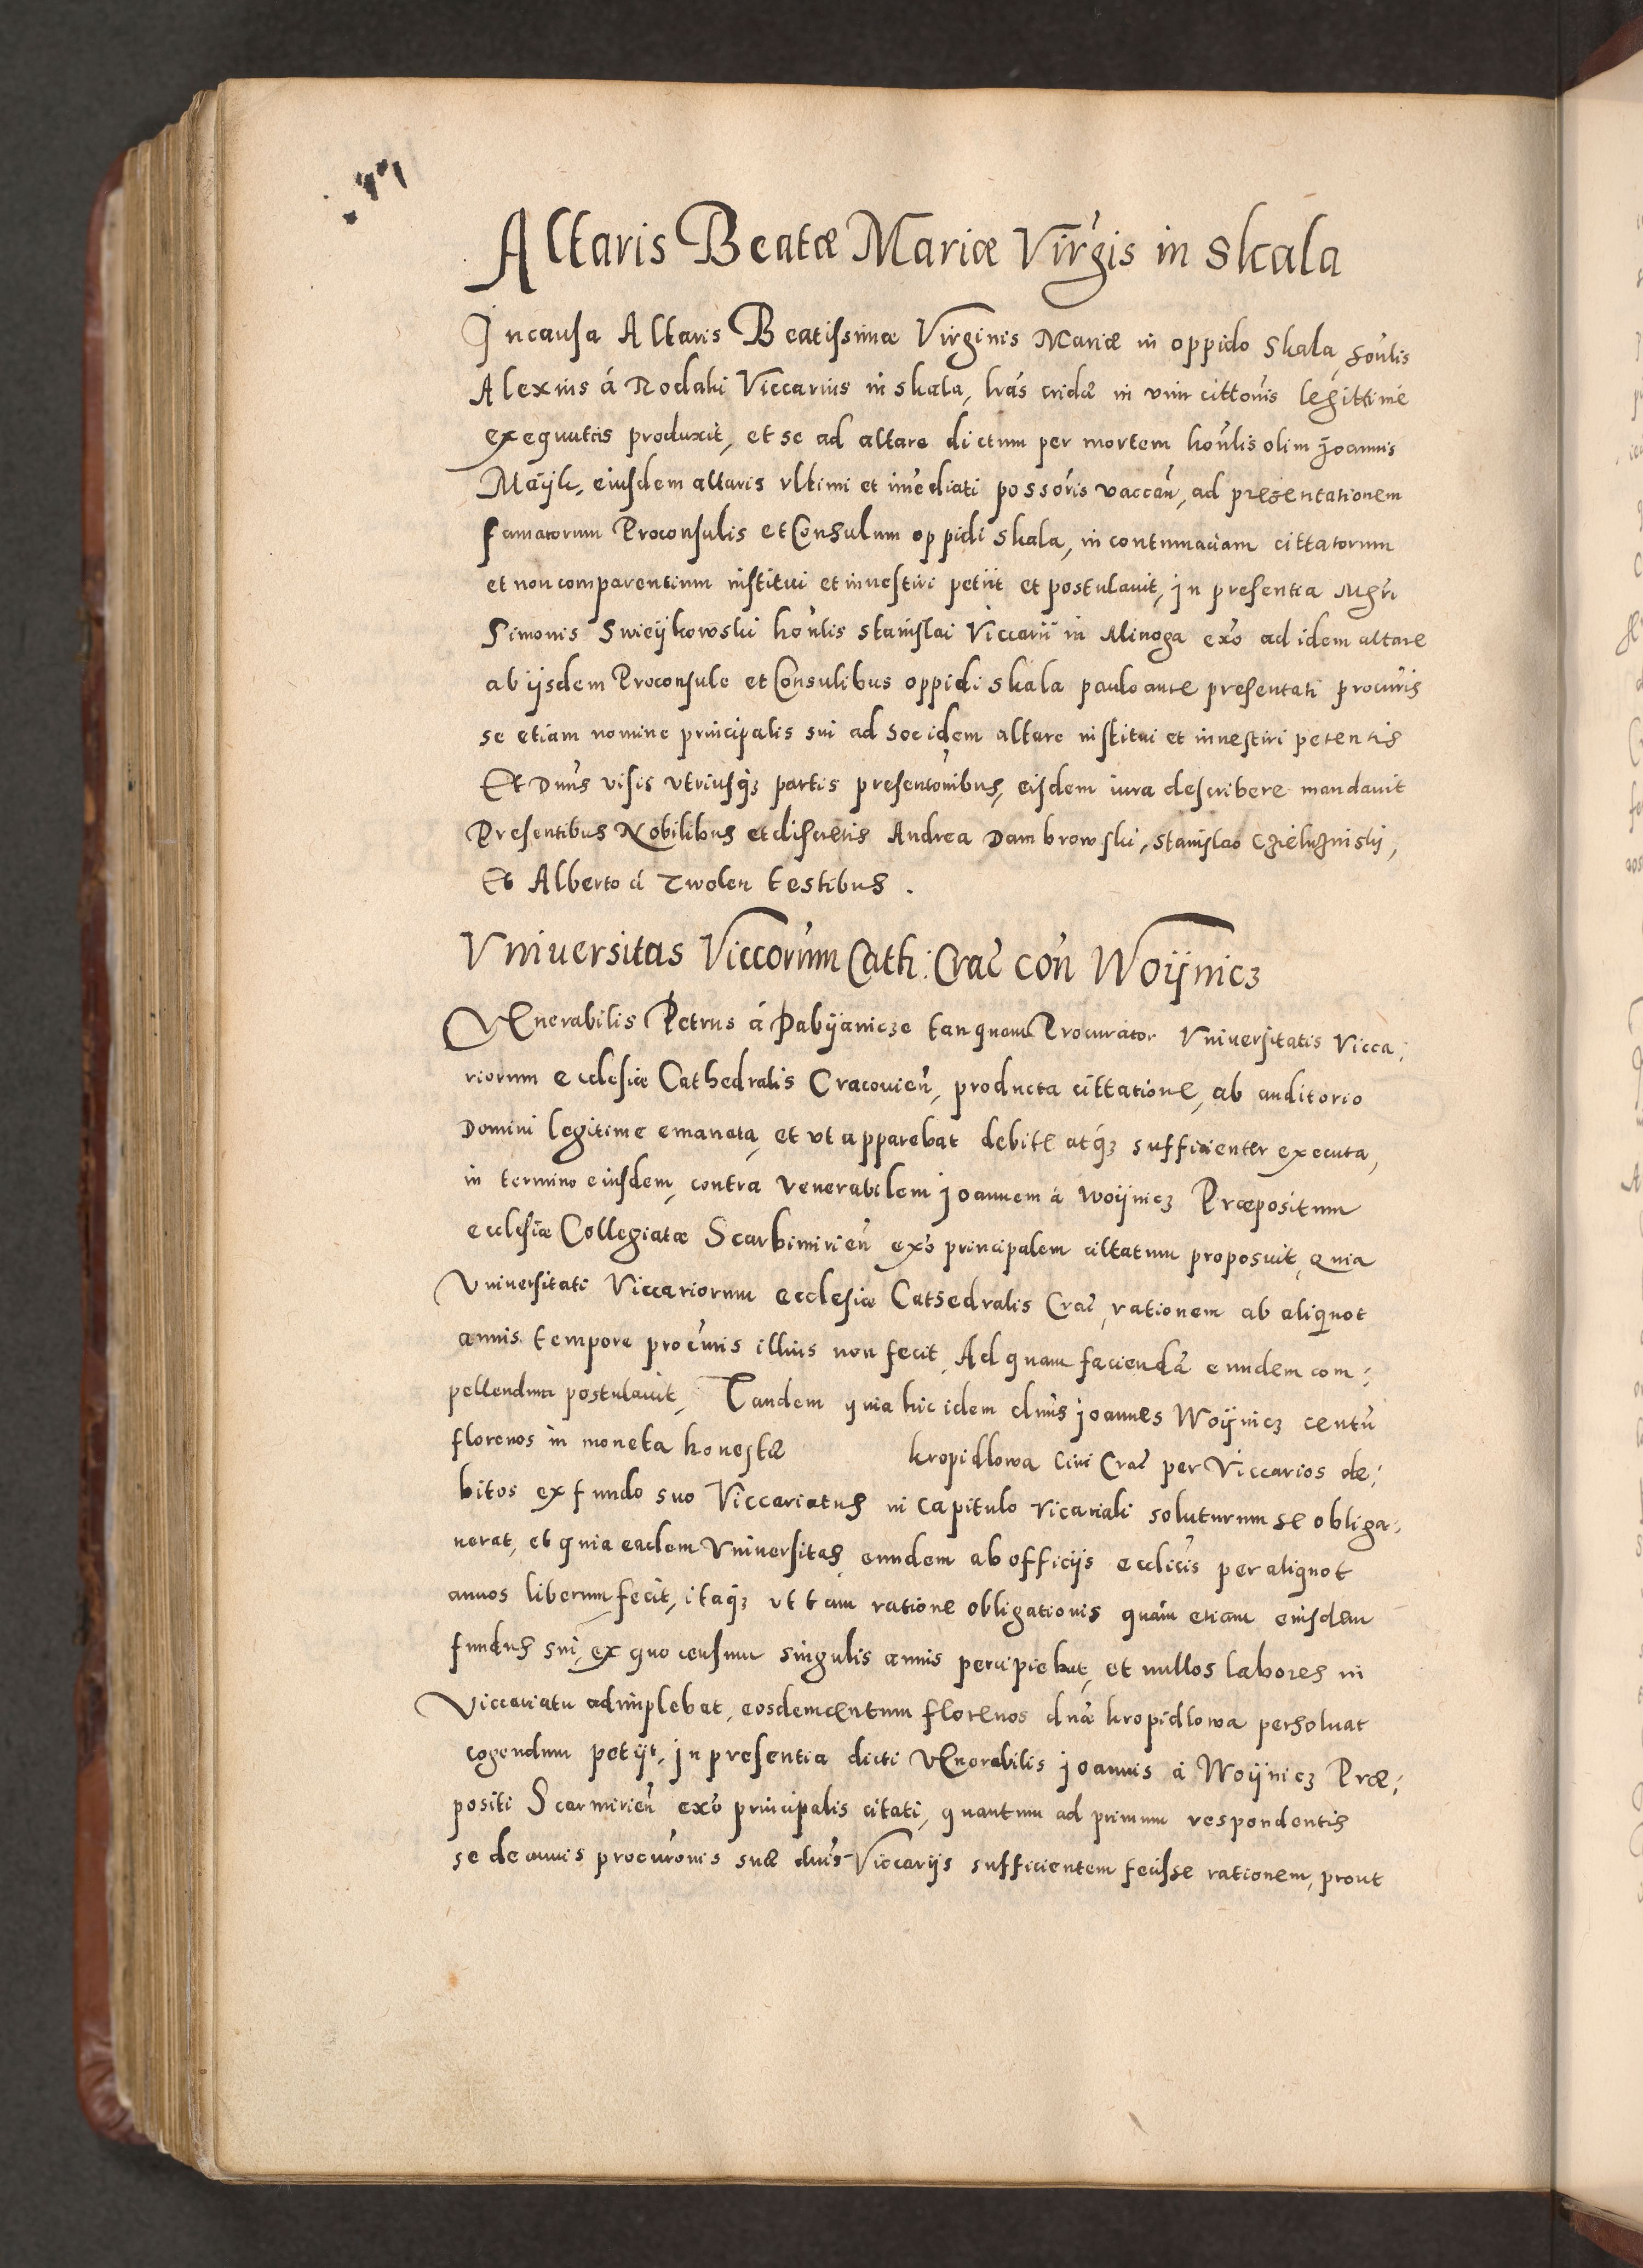 Altaris Beatæ Mariæ Virg̃is in Skala
In causa Altaris Beatissimæ Virginis Mariæ in oppido Skala, hon̄lis
Alexius á Rodaki Viccarius in skala, l̃ras cridæ in vim cittõnis legittimé
exequutas produxit, et se ad altare dictum per mortem hon̄lis olim Joannis
Maÿk, eiusdem altaris vltimi et im̃ediati possõris vaccañ, ad presentationem
famatorum Proconsulis et Consulum oppidi Skala, in contumaciam cittatorum
et non comparentium institui et inuestiri petiit et postulauit, in presentia Mgr̃i
Simonis Swieÿkowski hon̄lis Stanislai Viccarii in Minoga ex̃o ad idem altare
ab ijsdem Proconsule et Consulibus oppidi Skala paulo ante presentati procur̃is
se etiam nomine principalis sui ad hoc idem altare institui et inuestiri petentis
Et Dnūs visis vtriusq̃ꝫ partis presentõnibus, eisdem iura describere mandauit
Presentibus Nobilibus et discretis Andrea Dambrowski, Stanislao
Et Alberto á Zwolen testibus.
Vniuersitas Viccorũm Cath: Crac̃ con̄ Woÿnicz
VEnerabilis Petrus á Pabÿanicze tanquam Procurator Vniuersitatis Vicca;
riorum ecclesiæ Cathedralis Cracouien̄, producta cittatione, ab auditorio
Domini legitime emanata, et vt apparebat debite atq̃ꝫ sufficienter executa,
in termino eiusdem, contra venerabilem Joannem á Woÿnicz Præpositum
ecclesiæ Collegiatæ Scarbimirien̄ ex̃o principalem cittatum proposuit, quia
Vniuersitati Viccariorum ecclesiæ Cathedralis Crac̃, rationem ab aliquot
annis tempore procur̃nis illius non fecit, Ad quam faciendã eundem com;
pellendum postulauit, Tandem quia hic idem dnūs Joannes Woÿnicz centũ
florenos in moneta honestæ kropidlowa Ciui Crac̃ per Viccarios de;
bitos ex fundo suo Viccariatus in capitulo vicariali soluturum se obliga;
uerat, et quia eadem Vniuersitas eundem ab officijs ecclicis per aliquot
annos liberum fecit, itaq̃ꝫ vt tam ratione obligationis quàm etiam eiusdem
fundus sui, ex quo censum singulis annis percipiebat, et nullos labores in
Viccariatu adimplebat, eosdem centum florenos dnæ kropidlowa persoluat
cogendum petijt, in presentia dicti VEnerabilis Joannis á Woÿnicz Præ;
positi Scarmirien̄ ex̃o principalis citati, quantum ad primum respondentis
se de annis procurõnis suæ dnis Viccarijs sufficientem fecisse rationem, prout